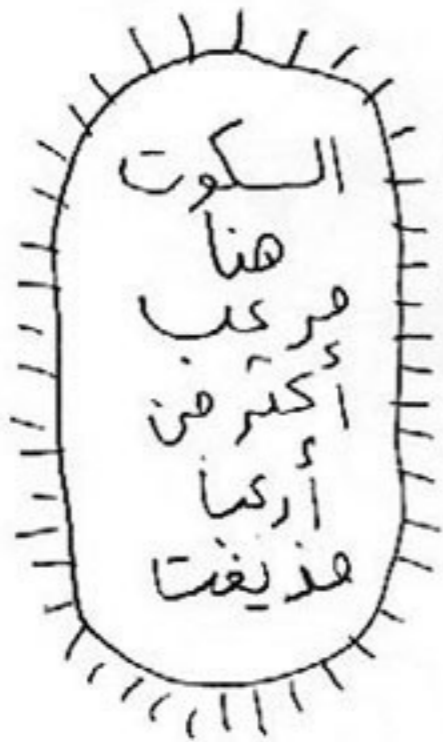 السكوت
هنا
مرعب
أكثر من
أرعبا
مذيفتا